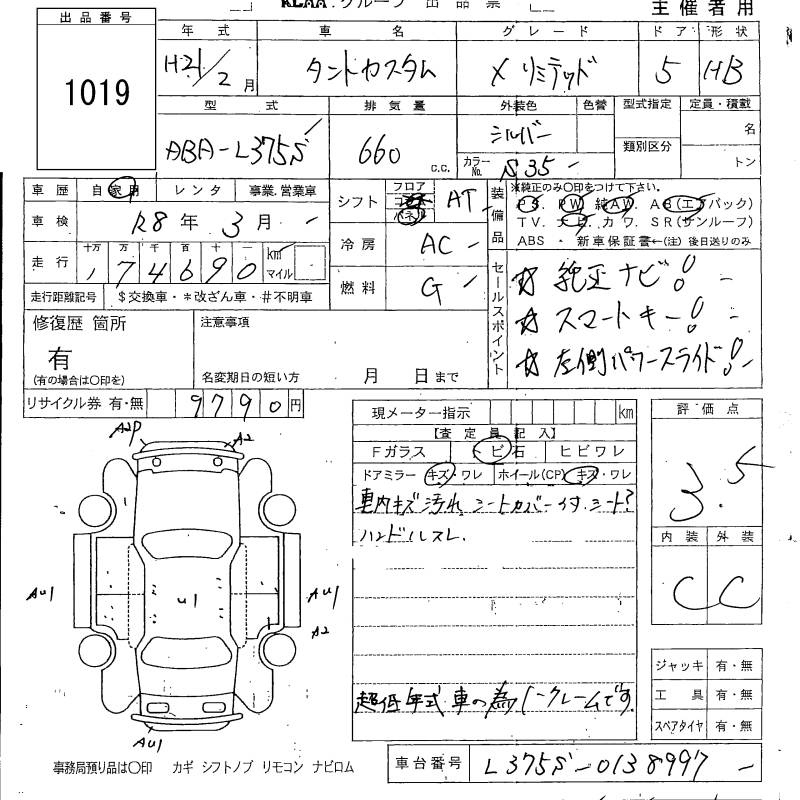 KCAA.グループ 出品票
主催者用
出品番号
1019
年式 車名 グレード ドア 形状
H21/2月 タントカスタム X リミテッド 5 HB
型式 排気量 外装色 色替 型式指定 定員・積載
ABA-L375S 660 c.c. シルバー 類別区分 名
カラーNo. S35 トン
車歴 自家用 レンタ 事業.営業車
シフト フロア コラム パネル AT
装備品 ※純正のみ〇印をつけて下さい。
PS. PW 純AW. AB(エアバック)
TV. ナビ カワ. SR(サンルーフ)
ABS ・ 新車保証書←(注) 後日送りのみ
車検 R8年 3月
冷房 AC
走行 十万 万 千 百 十 一
174690 km マイル
燃料 G
走行距離記号 $交換車・*改ざん車・#不明車
セールスポイント
☆ 純正ナビ!
☆ スマートキー!
☆ 左側パワースライド!
修復歴 箇所 注意事項
有
(有の場合は〇印を) 名変期日の短い方 月 日まで
リサイクル券 有・無 9790円
現メーター指示 km
【査定員記入】
Fガラス トビ石 ヒビワレ
ドアミラー キズ・ワレ ホイール(CP) キズ・ワレ
車内キズ汚れ シートカバー付 シート?
ハンドルスレ.
超低年式車の為ノークレームです.
評価点
3.5
内装 外装
C C
A2P A2
AU1 U1 AU1
A2
AU1
ジャッキ 有・無
工具 有・無
スペアタイヤ 有・無
事務局預り品は〇印 カギ シフトノブ リモコン ナビロム
車台番号 L375S-0138997